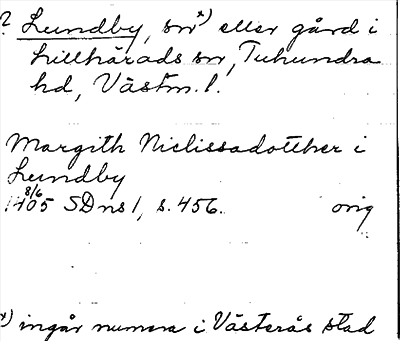 ? Lundby, sn x) eller gård i
Lillhärads sn, Tuhundra
hd, Västm. l.
Margith Niclissadotther i
Lundby
1405 8/6 SD ns 1, s. 456. orig
x) ingår numera i Västerås stad